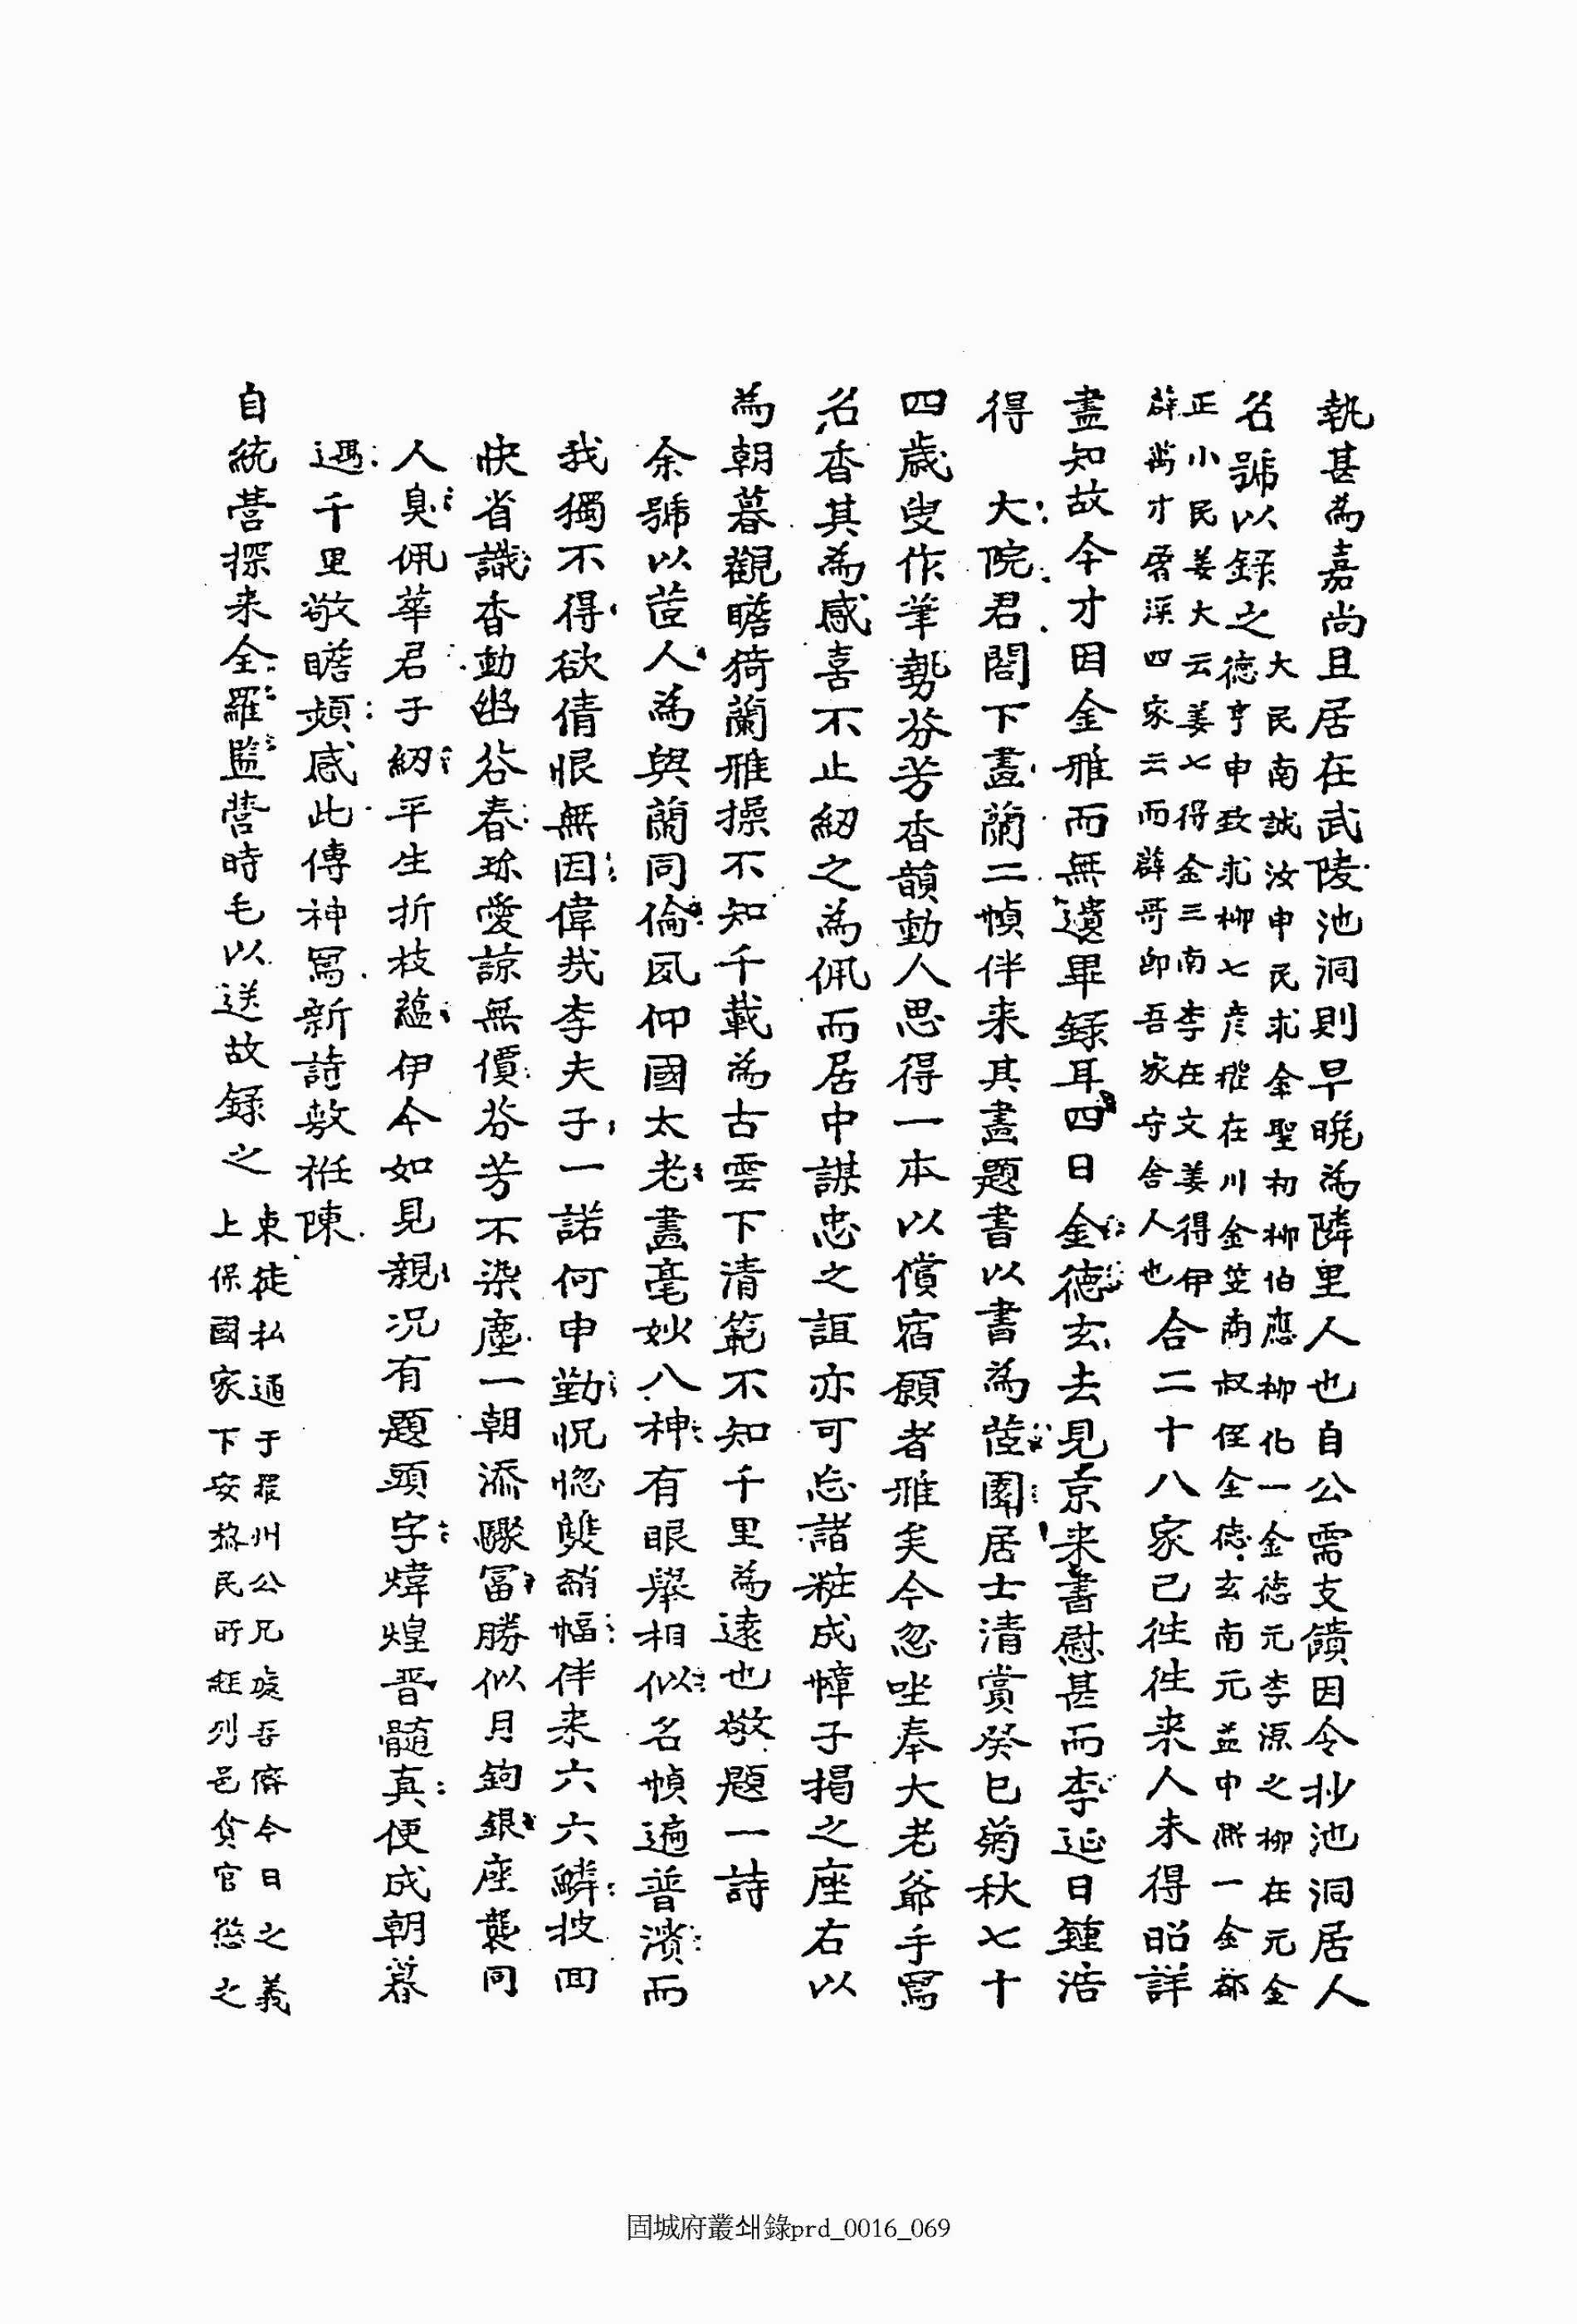 執甚為嘉尚且居在武陵池洞則早晩為隣里人也自公需支饋因令抄池洞居人
名號以錄之大民南誠汝申民求金聖初柳伯應柳化一金德元李源之柳在元金
德亨申致求柳七彦在川金笠南叔侄金德玄南元益申一金都
正小民姜大云姜七得金三南李在文姜得伊
薜萬才廗溪四家云而薜哥卽吾家守舍人也合二十八家已徃徃来人未得昭詳
盡知故今才因金雅而無遺畢錄耳四日金德玄去見京来書慰甚而李延日鍾浩
得 大院君閤下畫蘭二幀伴来其畫題書以書為茝園居士清賞癸巳菊秋七十
四歲叟作筆勢芬芳香韻動人思得一本以償宿願者雅矣今忽坐奉大老爺手寫
名香其為感喜不止紉之為佩而居中謀忠之誼亦可忘諸粧成幛子揭之座右以
為朝暮觀瞻猗蘭雅操不知千載為古雲下清範不知千里為遠也敬題一詩
余號以茝人為與蘭同倫夙仰國太老畫毫妙入神有眼舉相似名幀遍普濱而
我獨不得欲倩恨無因偉哉李夫子一諾何申勤怳惚幅伴来六六鱗披回
快省識香動幽谷春珎愛諒無價芬芳不染塵一朝添驟冨勝似月鉤銀座襲同
人臭佩華君子紉平生折枝蘊伊今如見親况有題頭字煒煌晋髓真便成朝暮
遇千里敬瞻頻感此傳神冩新詩敢陳
自統營探来全羅監營時毛以送故錄之東徒私通于羅州公兄處吾儕今日之義
上保國家下安黎民所經列邑貪官懲之
固城府叢쇄錄prd_0016_069